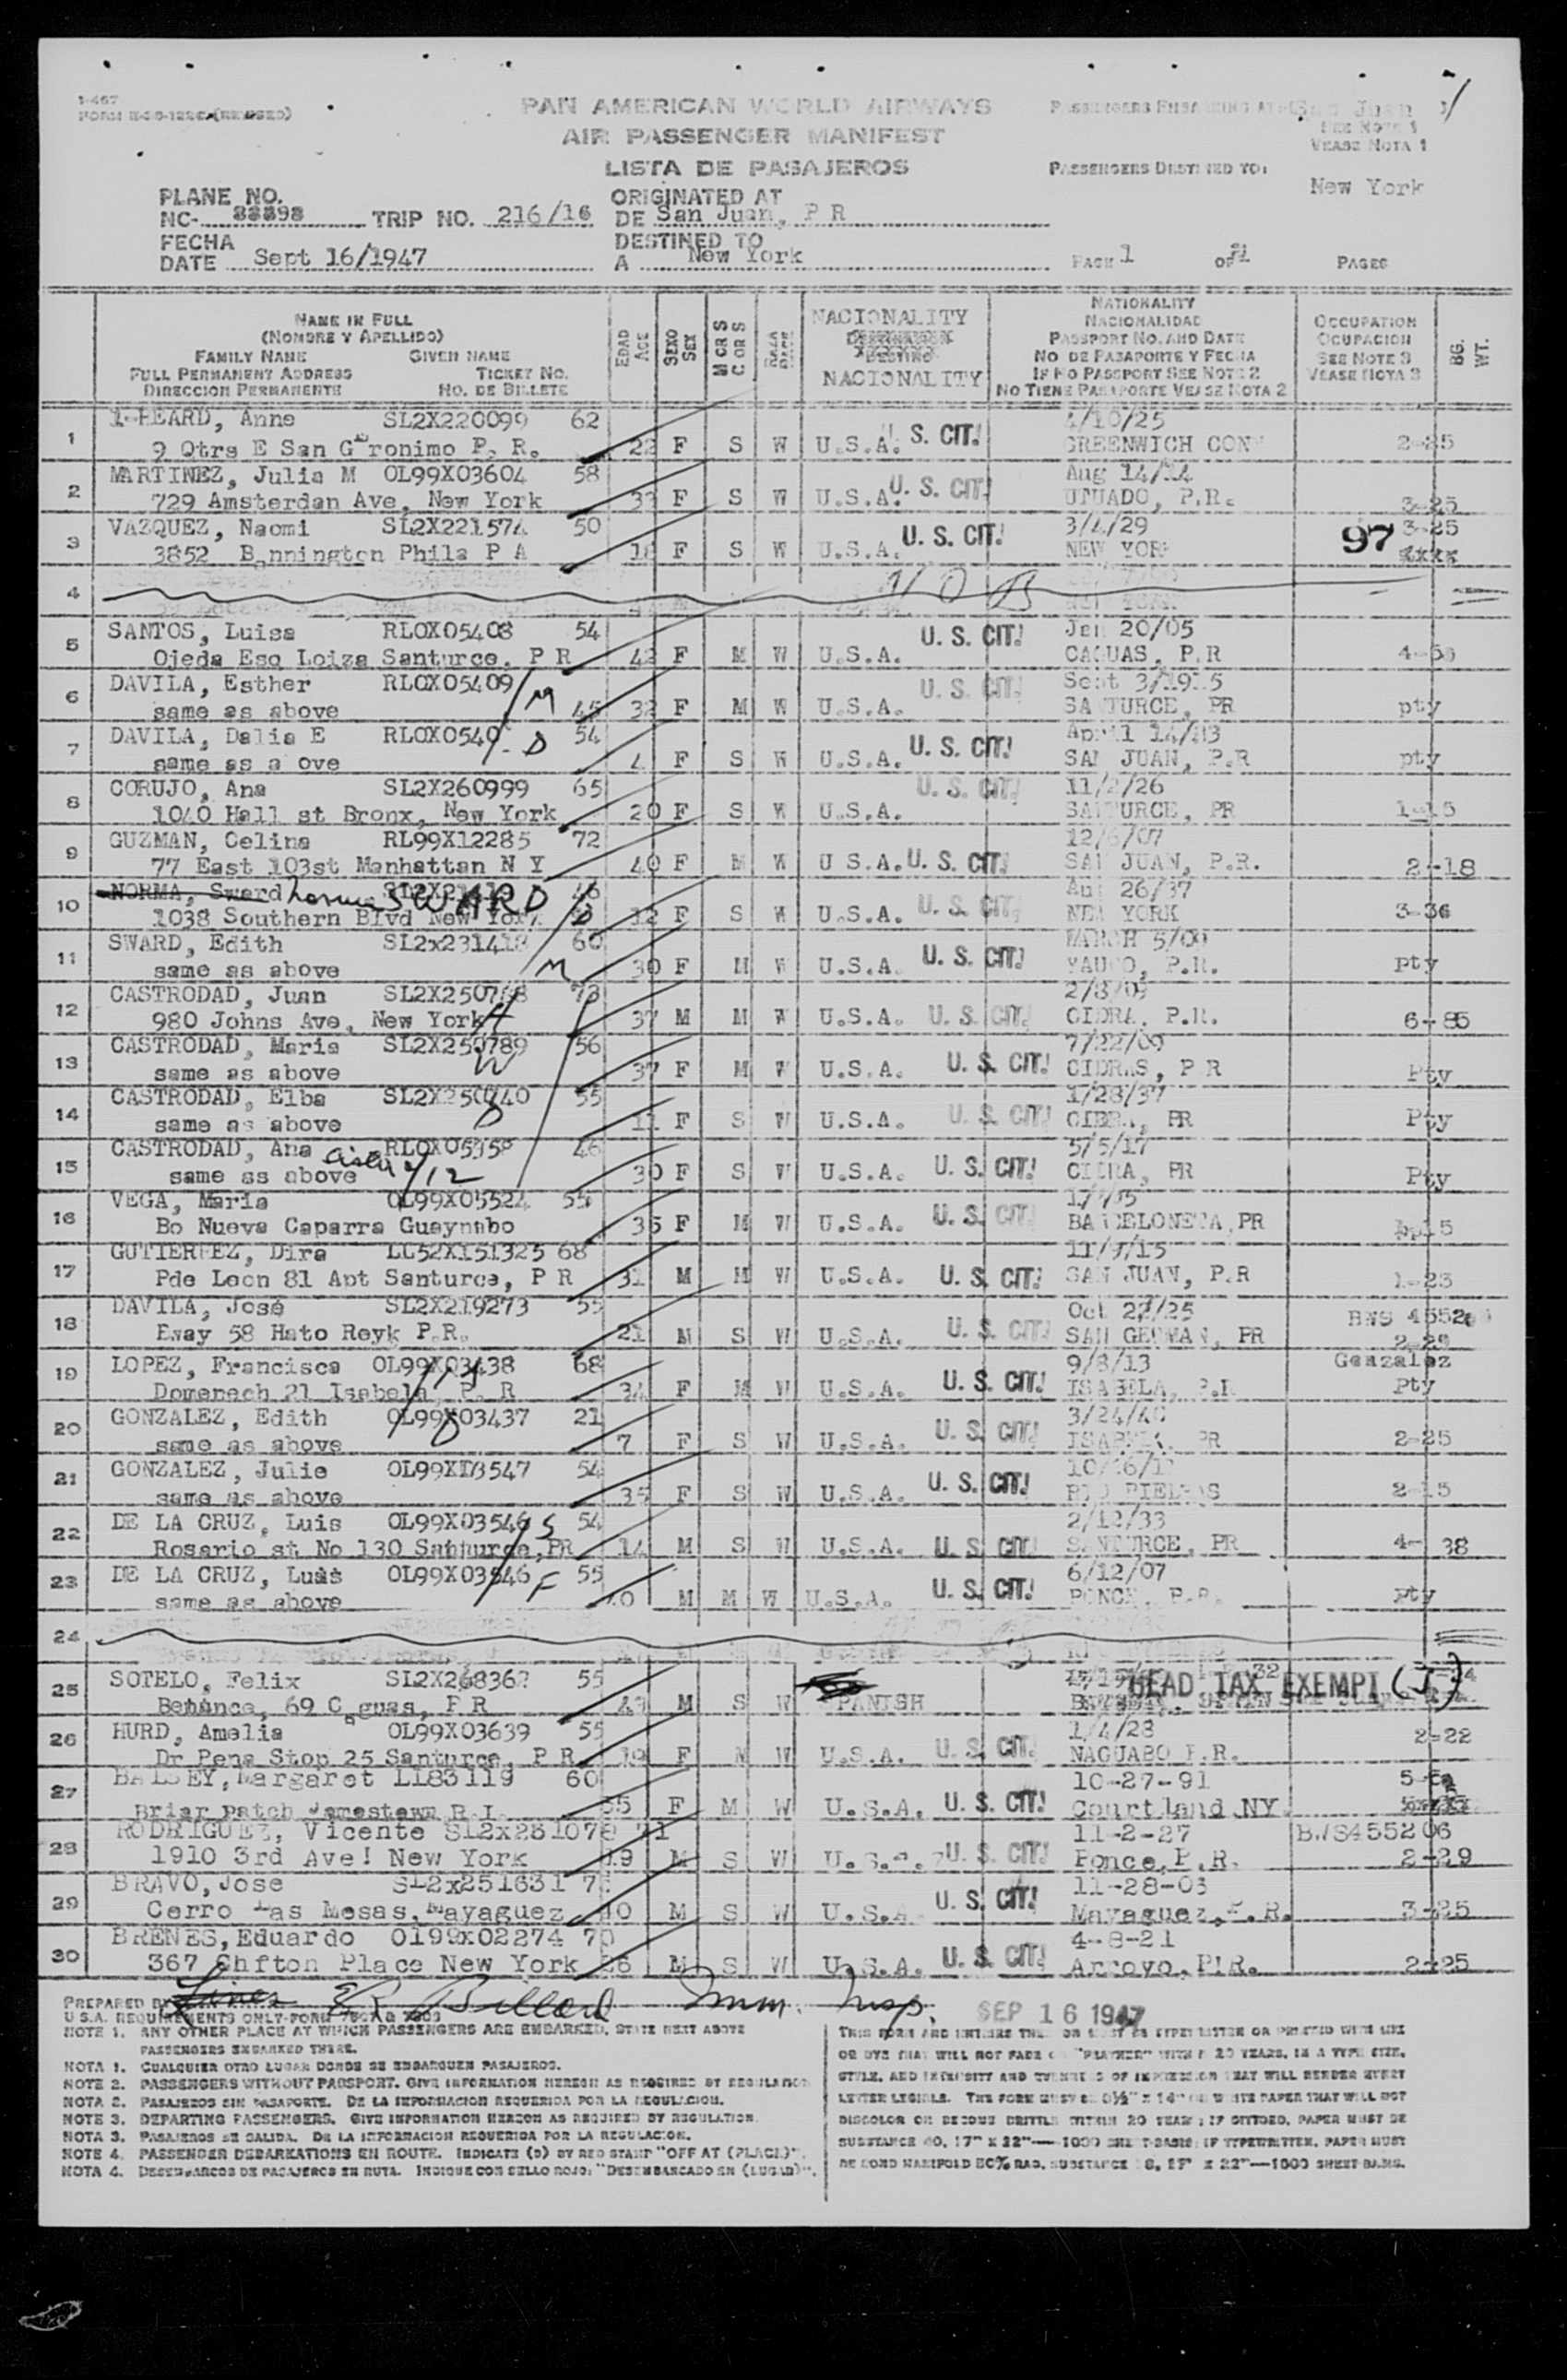 I-467
PAN AMERICAN WORLD AIRWAYS
AIR PASSENGER MANIFEST
LISTA DE PASAJEROS
PASSENGERS EMBARKING AT San Juan
SEE NOTE 1
VEASE NOTA 1
PASSENGERS DESTINED TO:
New York
PLANE NO.
NC- 88898 TRIP NO. 216/16
ORIGINATED AT
DE San Juan, P R
FECHA
DATE Sept 16/1947
DESTINED TO
A New York
PAGE 1 OF PAGES
NAME IN FULL
(NOMBRE Y APELLIDO)
FAMILY NAME GIVEN NAME
FULL PERMANENT ADDRESS TICKET NO.
DIRECCION PERMANENTE NO. DE BILLETE
EDAD AGE
SEXO SEX
M OR S C OR S
NACIONALITY
NACIONALITY
NATIONALITY
NACIONALIDAD
PASSPORT NO. AND DATE
NO DE PASAPORTE Y FECHA
IF NO PASSPORT SEE NOTE 2
NO TIENE PASAPORTE VEASE NOTA 2
OCCUPATION
OCUPACION
SEE NOTE 3
VEASE NOTA 3
BG. WT.
1 HEARD, Anne SL2X220099 62 4/10/25
9 Qtrs E San Geronimo P. R. 22 F S W U.S.A. U. S. CIT. GREENWICH CONN 2-25
2 MARTINEZ, Julia M OL99X03604 58 Aug 14/14
729 Amsterdan Ave, New York 33 F S W U.S.A. U. S. CIT. UTUADO, P.R. 3-25
3 VAZQUEZ, Naomi SL2X221574 50 3/4/29 97 3-25
3852 Bennington Phila P A 18 F S W U.S.A. U. S. CIT. NEW YORK
4 NOB
5 SANTOS, Luisa RLOX05408 54 Jan 20/05
Ojeda Esq Loiza Santurce, P R 42 F M W U.S.A. U. S. CIT. CAGUAS, P.R
6 DAVILA, Esther RLOX05409 M Sept 3/1915
same as above 45 32 F M W U.S.A. U. S. CIT. SANTURCE, PR pty
7 DAVILA, Dalia E RLOX0540 D 54 April 14/43
same as a ove 4 F S W U.S.A. U. S. CIT. SAN JUAN, P.R pty
8 CORUJO, Ana SL2X260999 65 11/2/26
1040 Hall st Bronx, New York 20 F S W U.S.A. U. S. CIT. SANTURCE, PR 1-15
9 GUZMAN, Celina RL99X12285 72 12/6/07
77 East 103st Manhattan N Y 40 F M W U S.A. U. S. CIT. SAN JUAN, P.R. 2-18
10 NORMA, Sward Norma SWARD 46 Aug 26/37
1038 Southern Blvd New York D 12 F S W U.S.A. U. S. CIT. NEW YORK 3-36
11 SWARD, Edith SL2x231418 60 MARCH 5/09
same as above M 30 F M W U.S.A. U. S. CIT. YAUCO, P.R. pty
12 CASTRODAD, Juan SL2X250788 73
980 Johns Ave, New York H 37 M M W U.S.A. U. S. CIT. CIDRA, P.R. 6-85
13 CASTRODAD, Maria SL2X250789 56 7/22/09
same as above W 37 F M W U.S.A. U. S. CIT. CIDRAS, P R Pty
14 CASTRODAD, Elba 55 1/28/37
same as above D 11 F S W U.S.A. U. S. CIT. CIDRA, PR Pty
15 CASTRODAD, Ana 46 5/5/17
same as above sister 4/12 30 F S W U.S.A. U. S. CIT. CIDRA, PR Pty
16 VEGA, Maria OL99X05524 55
Bo Nueva Caparra Guaynabo 35 F M W U.S.A. U. S. CIT. BARCELONETA, PR
17 GUTIERREZ, Dira LC52X151325 68 11/9/15
Pde Leon 81 Apt Santurce, P R 31 M M W U.S.A. U. S. CIT. SAN JUAN, P.R 1-23
18 DAVILA, José SL2X219273 55 Oct 22/25
Eway 58 Hato Reyk P.R. 21 M S W U.S.A. U. S. CIT. SAN GERMAN, PR
19 LOPEZ, Francisca OL99X03438 68 9/8/13 Gonzalez
Domenech 21 Isabela, P. R 34 F M W U.S.A. U. S. CIT. ISABELA, P.R Pty
20 GONZALEZ, Edith OL99X03437 21 3/24/40
same as above D 7 F S W U.S.A. U. S. CIT. ISABELA, PR 2-25
21 GONZALEZ, Julie 54
same as above 35 F S W U.S.A. U. S. CIT. RIO PIEDRAS 2-15
22 DE LA CRUZ, Luis OL99X03546 S 54 2/12/33
Rosario st No 130 Santurce, PR 14 M S W U.S.A. U. S. CIT. SANTURCE, PR 4-38
23 DE LA CRUZ, Luis OL99X03546 F 55 6/12/07
same as above 40 M M W U.S.A. U. S. CIT. PONCE, P.R. pty
24
25 SOTELO, Felix SL2X268362 55 HEAD TAX EXEMPT (J)
Betances, 69 Caguas, P R M S W SPANISH
26 HURD, Amelia OL99X03639 55 1/4/28
Dr Pena Stop 25 Santurce, P R. 19 F M W U.S.A. U. S. CIT. NAGUABO P.R. 2-22
27 BAILEY, Margaret LL83119 60 10-27-91
Briar Patch Jamestown R.I. 55 F M W U.S.A. U. S. CIT. Courtland NY.
28 RODRIGUEZ, Vicente 71 11-2-27 BWS455206
1910 3rd Ave! New York 19 M S W U.S.A. U. S. CIT. Ponce, P.R. 2-29
29 BRAVO, Jose SL2x251631 11-28-06
Cerro Las Mesas, Mayaguez 40 M S W U.S.A U. S. CIT. Mayaguez, P.R. 3-25
30 BRENES, Eduardo Ol99x02274 70 4-8-21
367 Chfton Place New York 26 M S W U.S.A. U. S. CIT. Arroyo, P.R. 2-25
PREPARED BY E R Billard Imm. Insp. SEP 16 1947
U S.A. REQUIREMENTS ONLY-FORM
NOTE 1. ANY OTHER PLACE AT WHICH PASSENGERS ARE EMBARKED, STATE NEXT ABOVE
PASSENGERS EMBARKED THERE.
NOTA 1. CUALQUIER OTRO LUGAR DONDE SE EMBARQUEN PASAJEROS.
NOTE 2. PASSENGERS WITHOUT PASSPORT. GIVE INFORMATION HEREON AS REQUIRED BY REGULATION
NOTA 2. PASAJEROS SIN PASAPORTE. DE LA INFORMACION REQUERIDA POR LA REGULACION.
NOTE 3. DEPARTING PASSENGERS. GIVE INFORMATION HEREON AS REQUIRED BY REGULATION.
NOTA 3. PASAJEROS DE SALIDA. DE LA INFORMACION REQUERIDA POR LA REGULACION.
NOTE 4. PASSENGER DEBARKATIONS EN ROUTE. INDICATE (D) BY RED STAMP "OFF AT (PLACE)".
NOTA 4. DESEMBARCOS DE PASAJEROS EN RUTA. INDIQUE CON SELLO ROJO: "DESEMBARCADO EN (LUGAR)".
THIS FORM AND ENTRIES THEREON MUST BE TYPEWRITTEN OR PRINTED WITH INK
OR DYE THAT WILL NOT FADE OR "FEATHER" WITHIN 20 YEARS, IN A TYPE SIZE,
STYLE, AND INTENSITY AND EVENNESS OF IMPRESSION THAT WILL RENDER EVERY
LETTER LEGIBLE. THE FORM MUST BE 8½" x 14" ON WHITE PAPER THAT WILL NOT
DISCOLOR OR BECOME BRITTLE WITHIN 20 YEARS; IF DITTOED, PAPER MUST BE
SUBSTANCE 40, 17" X 22"—1000 SHEET BASIS; IF TYPEWRITTEN, PAPER MUST
BE BOND MANIFOLD 50% RAG, SUBSTANCE 8, 17" X 22"—1000 SHEET BASIS.